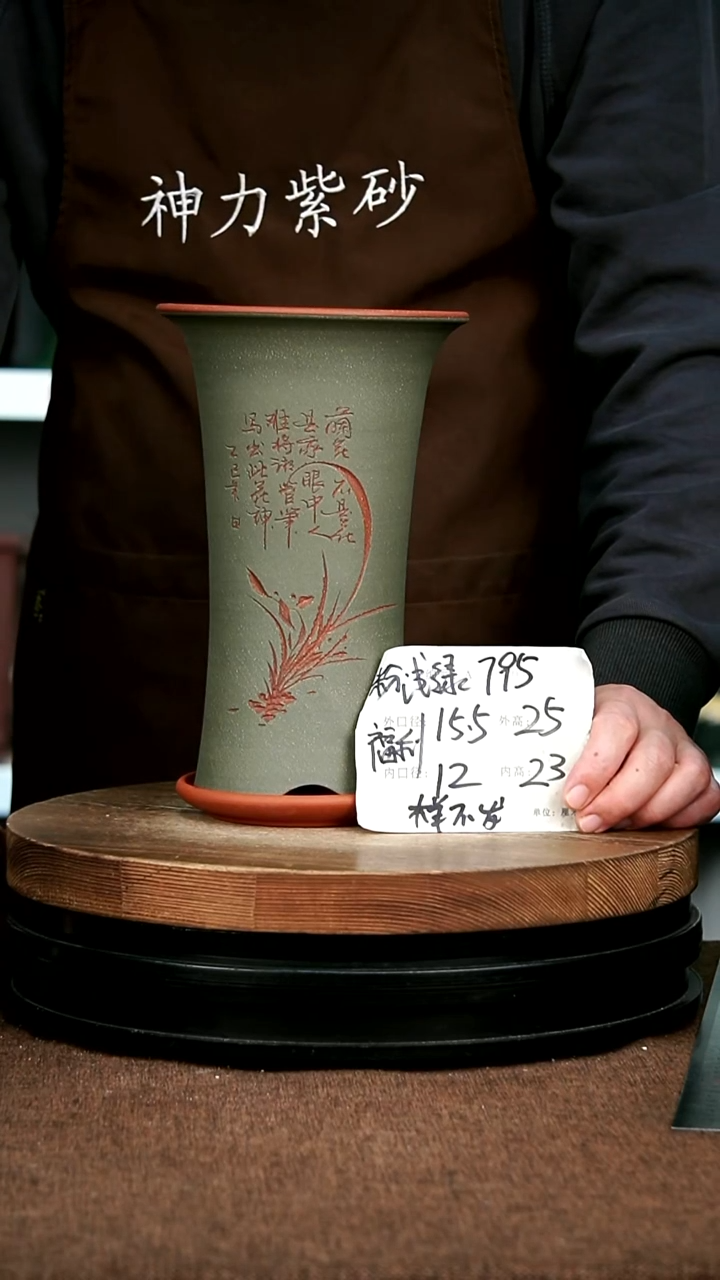 神力紫砂
兰花不是花
是我眼中人
难将湘管笔
写出此花神
乙巳景日
粉浅绿 795
福利
外口径: 15.5 外高: 25
内口径: 12 内高: 23
样不发
单位: 厘